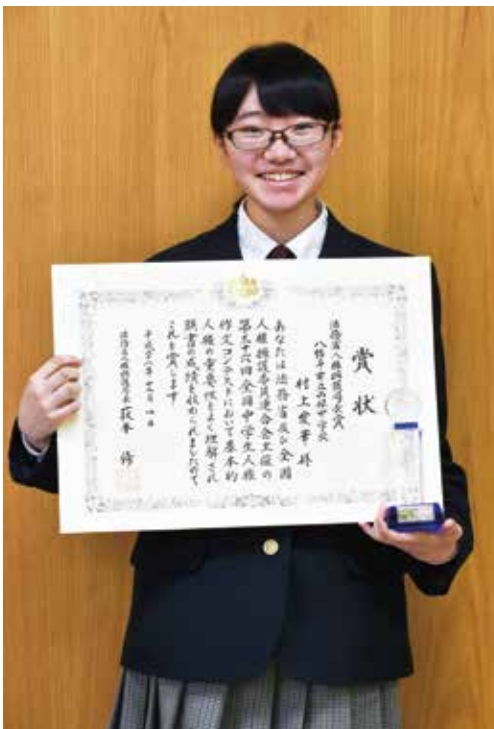 賞状
法務省人権擁護局長賞
八幡平市立西根中学校
村上愛華 様
あなたは法務省及び全国
人権擁護委員連合会主催の
第三十六回全国中学生人権
作文コンテストにおいて基本的
人権の重要性をよく理解され
顕著な成績を収められましたので
これを賞します
平成
法務省人権擁護局長 萩本 修